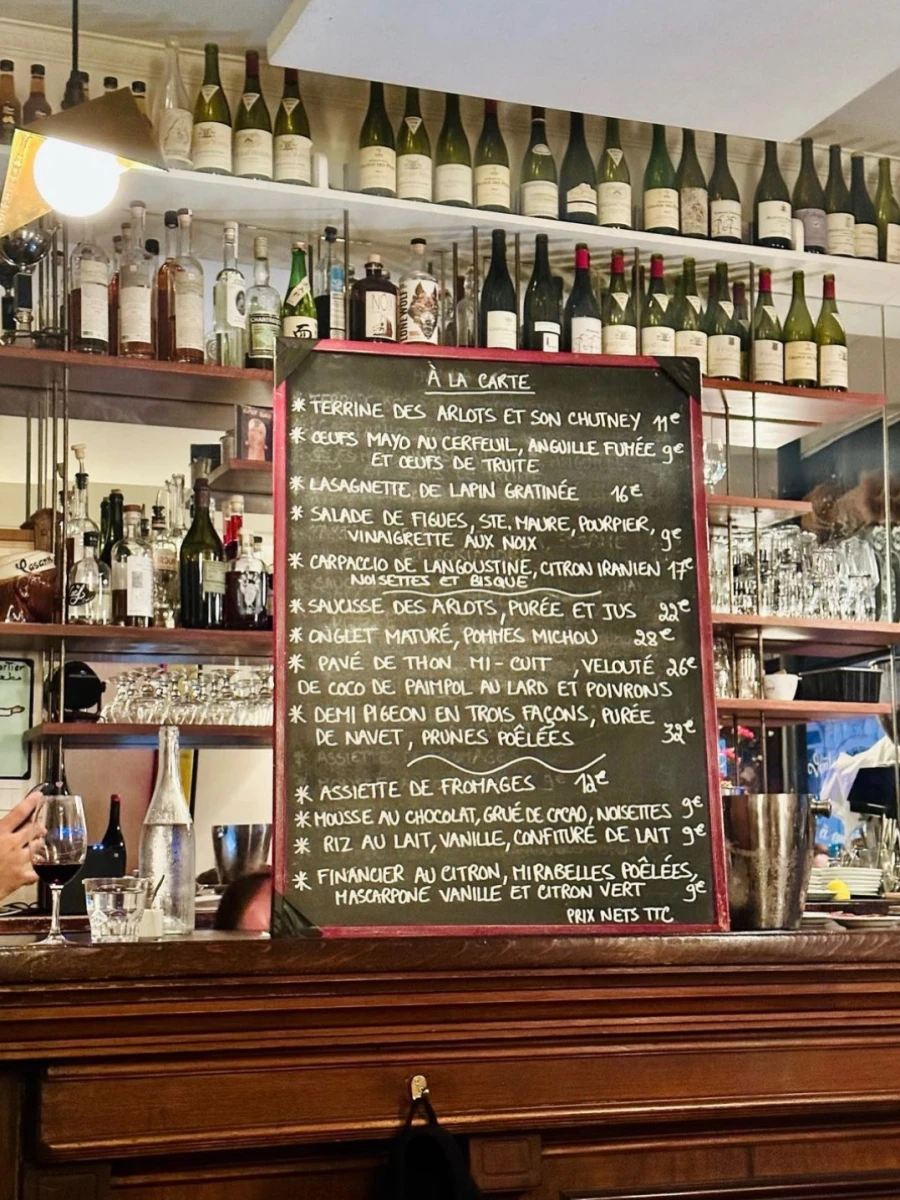 À LA CARTE
* TERRINE DES ARLOTS ET SON CHUTNEY 11€
* ŒUFS MAYO AU CERFEUIL, ANGUILLE FUMÉE 9€
ET ŒUFS DE TRUITE
* LASAGNETTE DE LAPIN GRATINÉE 16€
* SALADE DE FIGUES, STE. MAURE, POURPIER,
VINAIGRETTE AUX NOIX 9€
* CARPACCIO DE LANGOUSTINE, CITRON IRANIEN 17€
NOISETTES ET BISQUE
* SAUCISSE DES ARLOTS, PURÉE ET JUS 22€
* ONGLET MATURÉ, POMMES MICHOU 28€
* PAVÉ DE THON MI-CUIT , VELOUTÉ 26€
DE COCO DE PAIMPOL AU LARD ET POIVRONS
* DEMI PIGEON EN TROIS FAÇONS, PURÉE
DE NAVET, PRUNES POÊLÉES 32€
* ASSIETTE DE FROMAGES 12€
* MOUSSE AU CHOCOLAT, GRUÉ DE CACAO, NOISETTES 9€
* RIZ AU LAIT, VANILLE, CONFITURE DE LAIT 9€
* FINANCIER AU CITRON, MIRABELLES POÊLÉES,
MASCARPONE VANILLE ET CITRON VERT 9€
PRIX NETS TTC